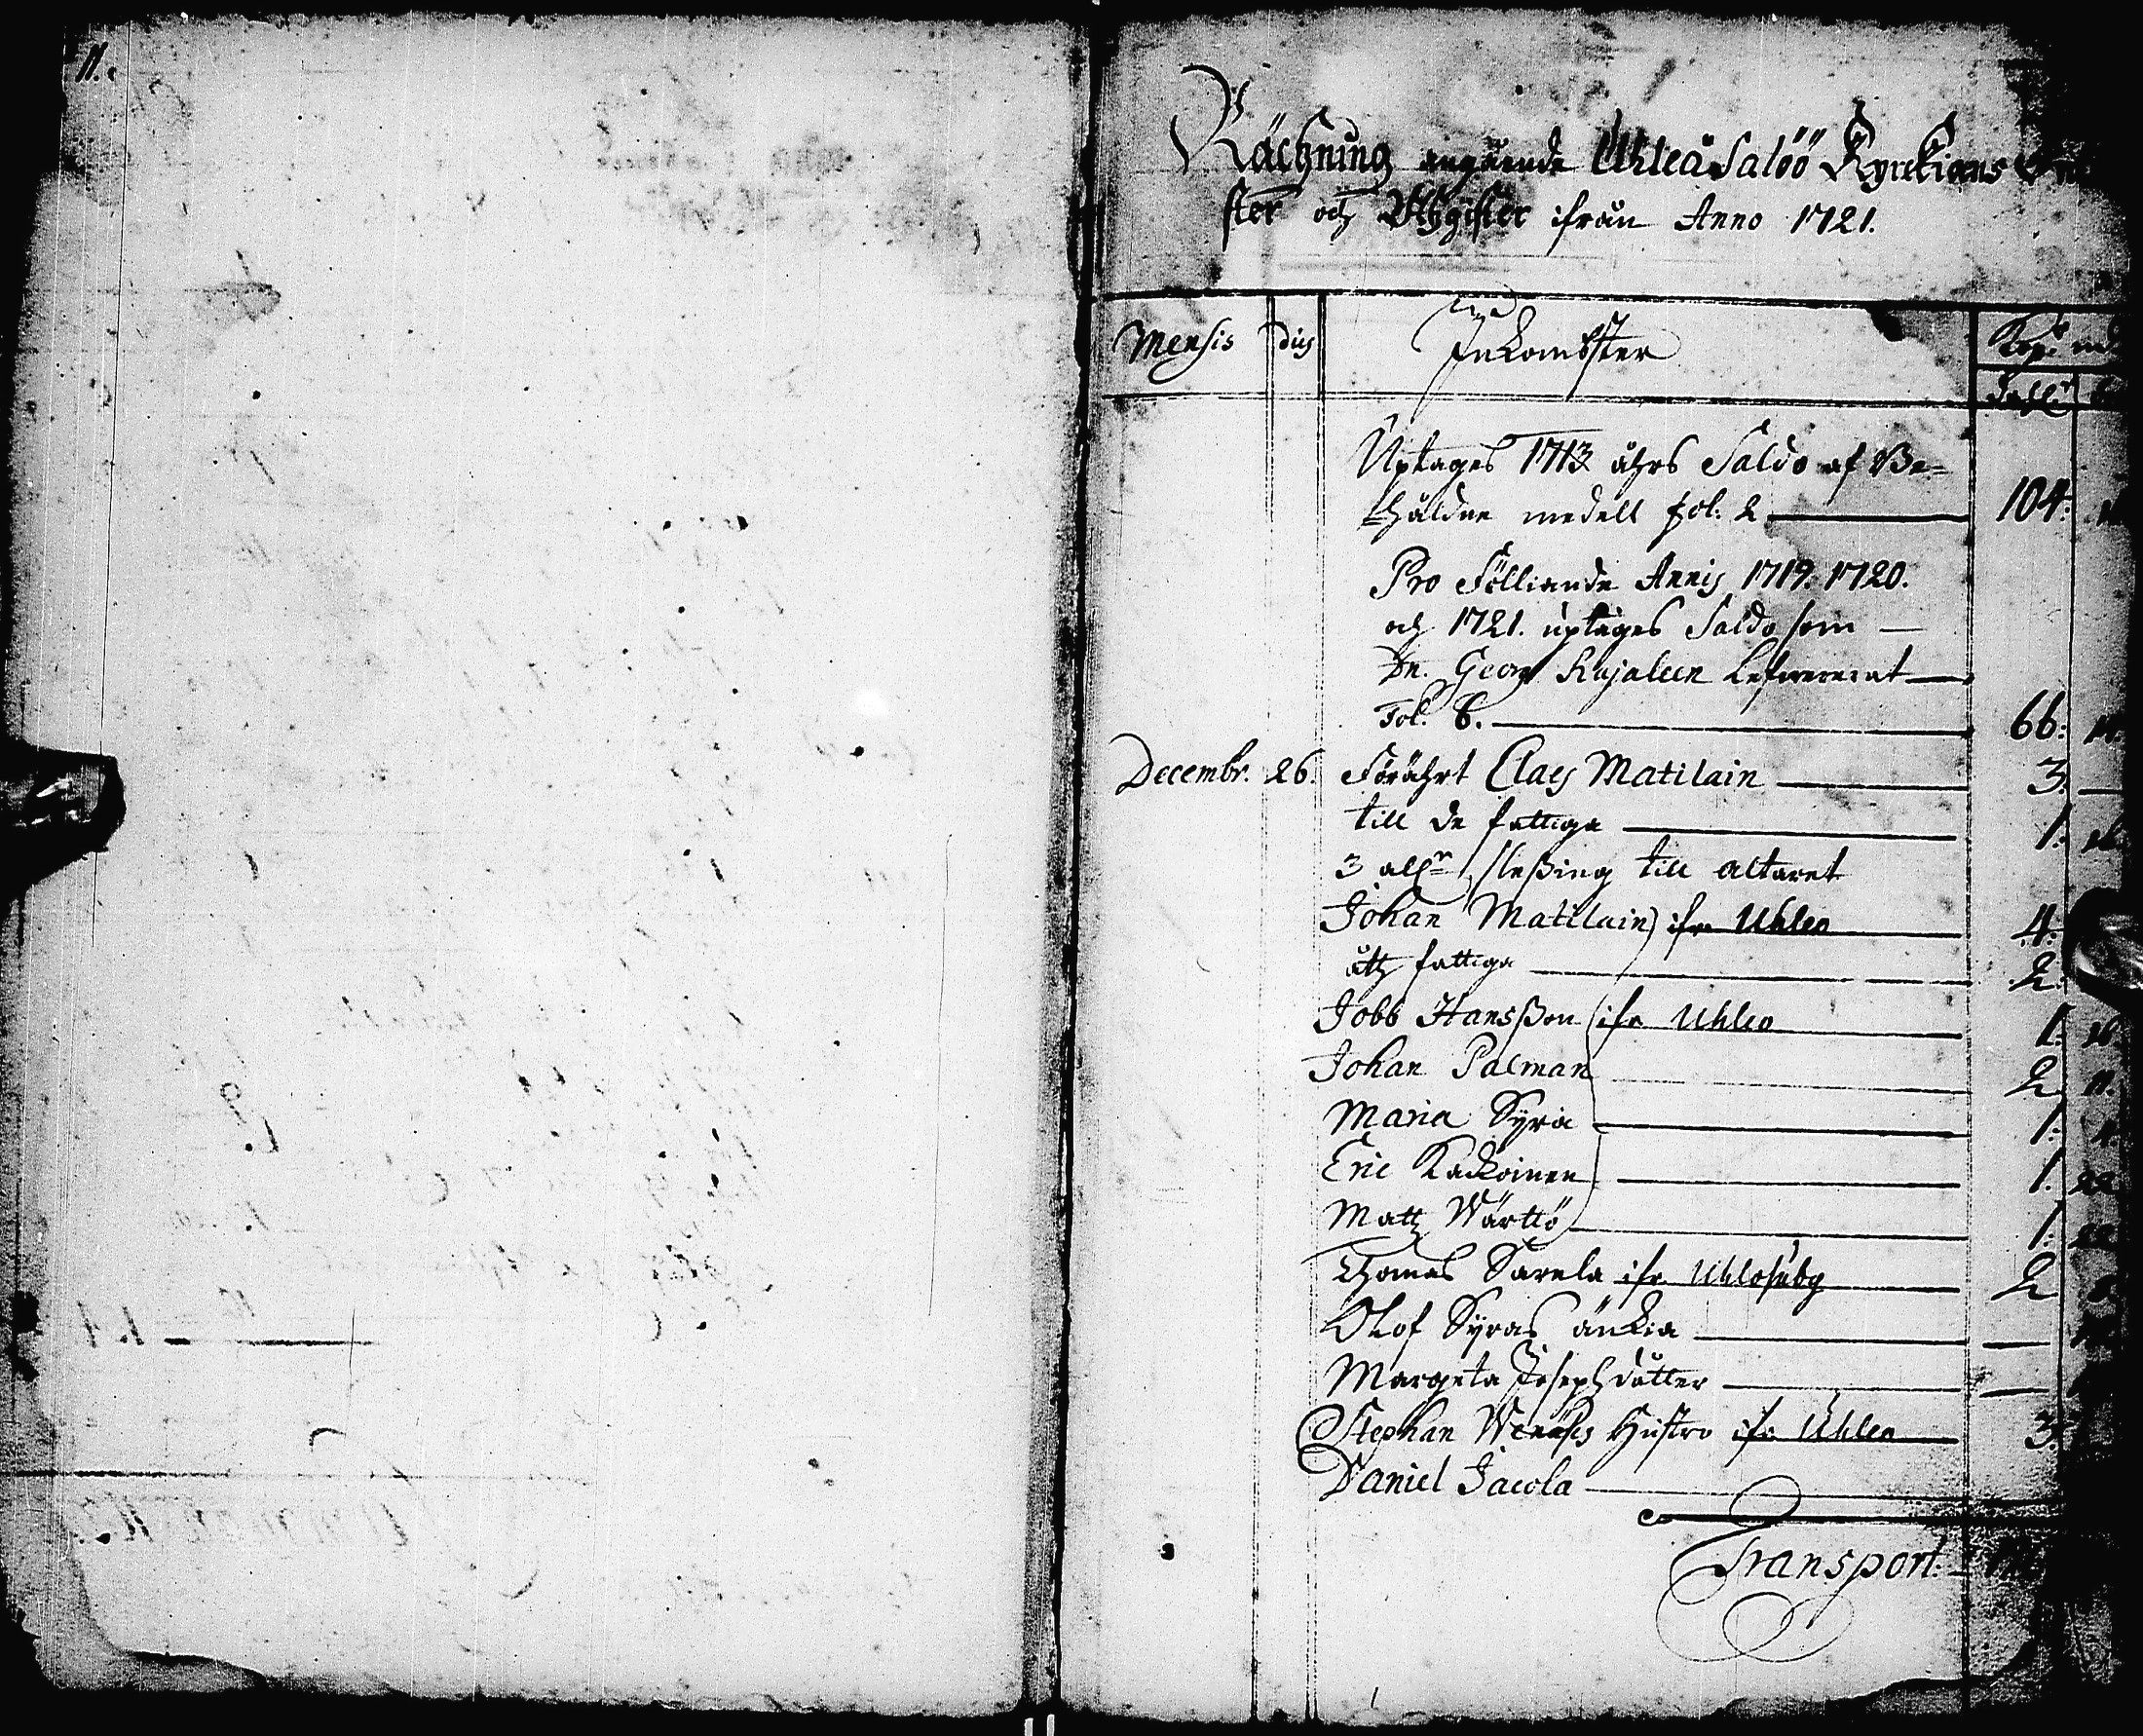 11.
Räckning angående Uhleå Salöö Kyrckians
ster och Uthgifter ifrån Anno 1721.
Mensis Dies Inkombster Kop: m
Dahlr
Uptages 1713 åhrs Saldo af Be=
håldne medell fol: 2 104:
Pro Fölliande Annis 1719. 1720.
och 1721. uptages Saldo som
Dn. Georg Kajaleen Lefwererat
Fol. 8. 66:
Decembr. 26. Förährt Claes Matilain 3.
till de fattiga 1.
3 alnr till altaret
Johan Matilain ifr Uhleo 4.
åth fattiga 2.
Jobb Hansßon ifr Uhleo 1.
Johan Palman 2. 11.
Maria Syria 1.
Eric Kackoinen 1. 22
Matz Wärttö 1. 22
Thomas Sarela ifr Uhlosubg 2
Olof Syras änkia
Margeta Josephdotter
Stephan Hustro ifr Uhleo 3.
Daniel Jacola
Transport.